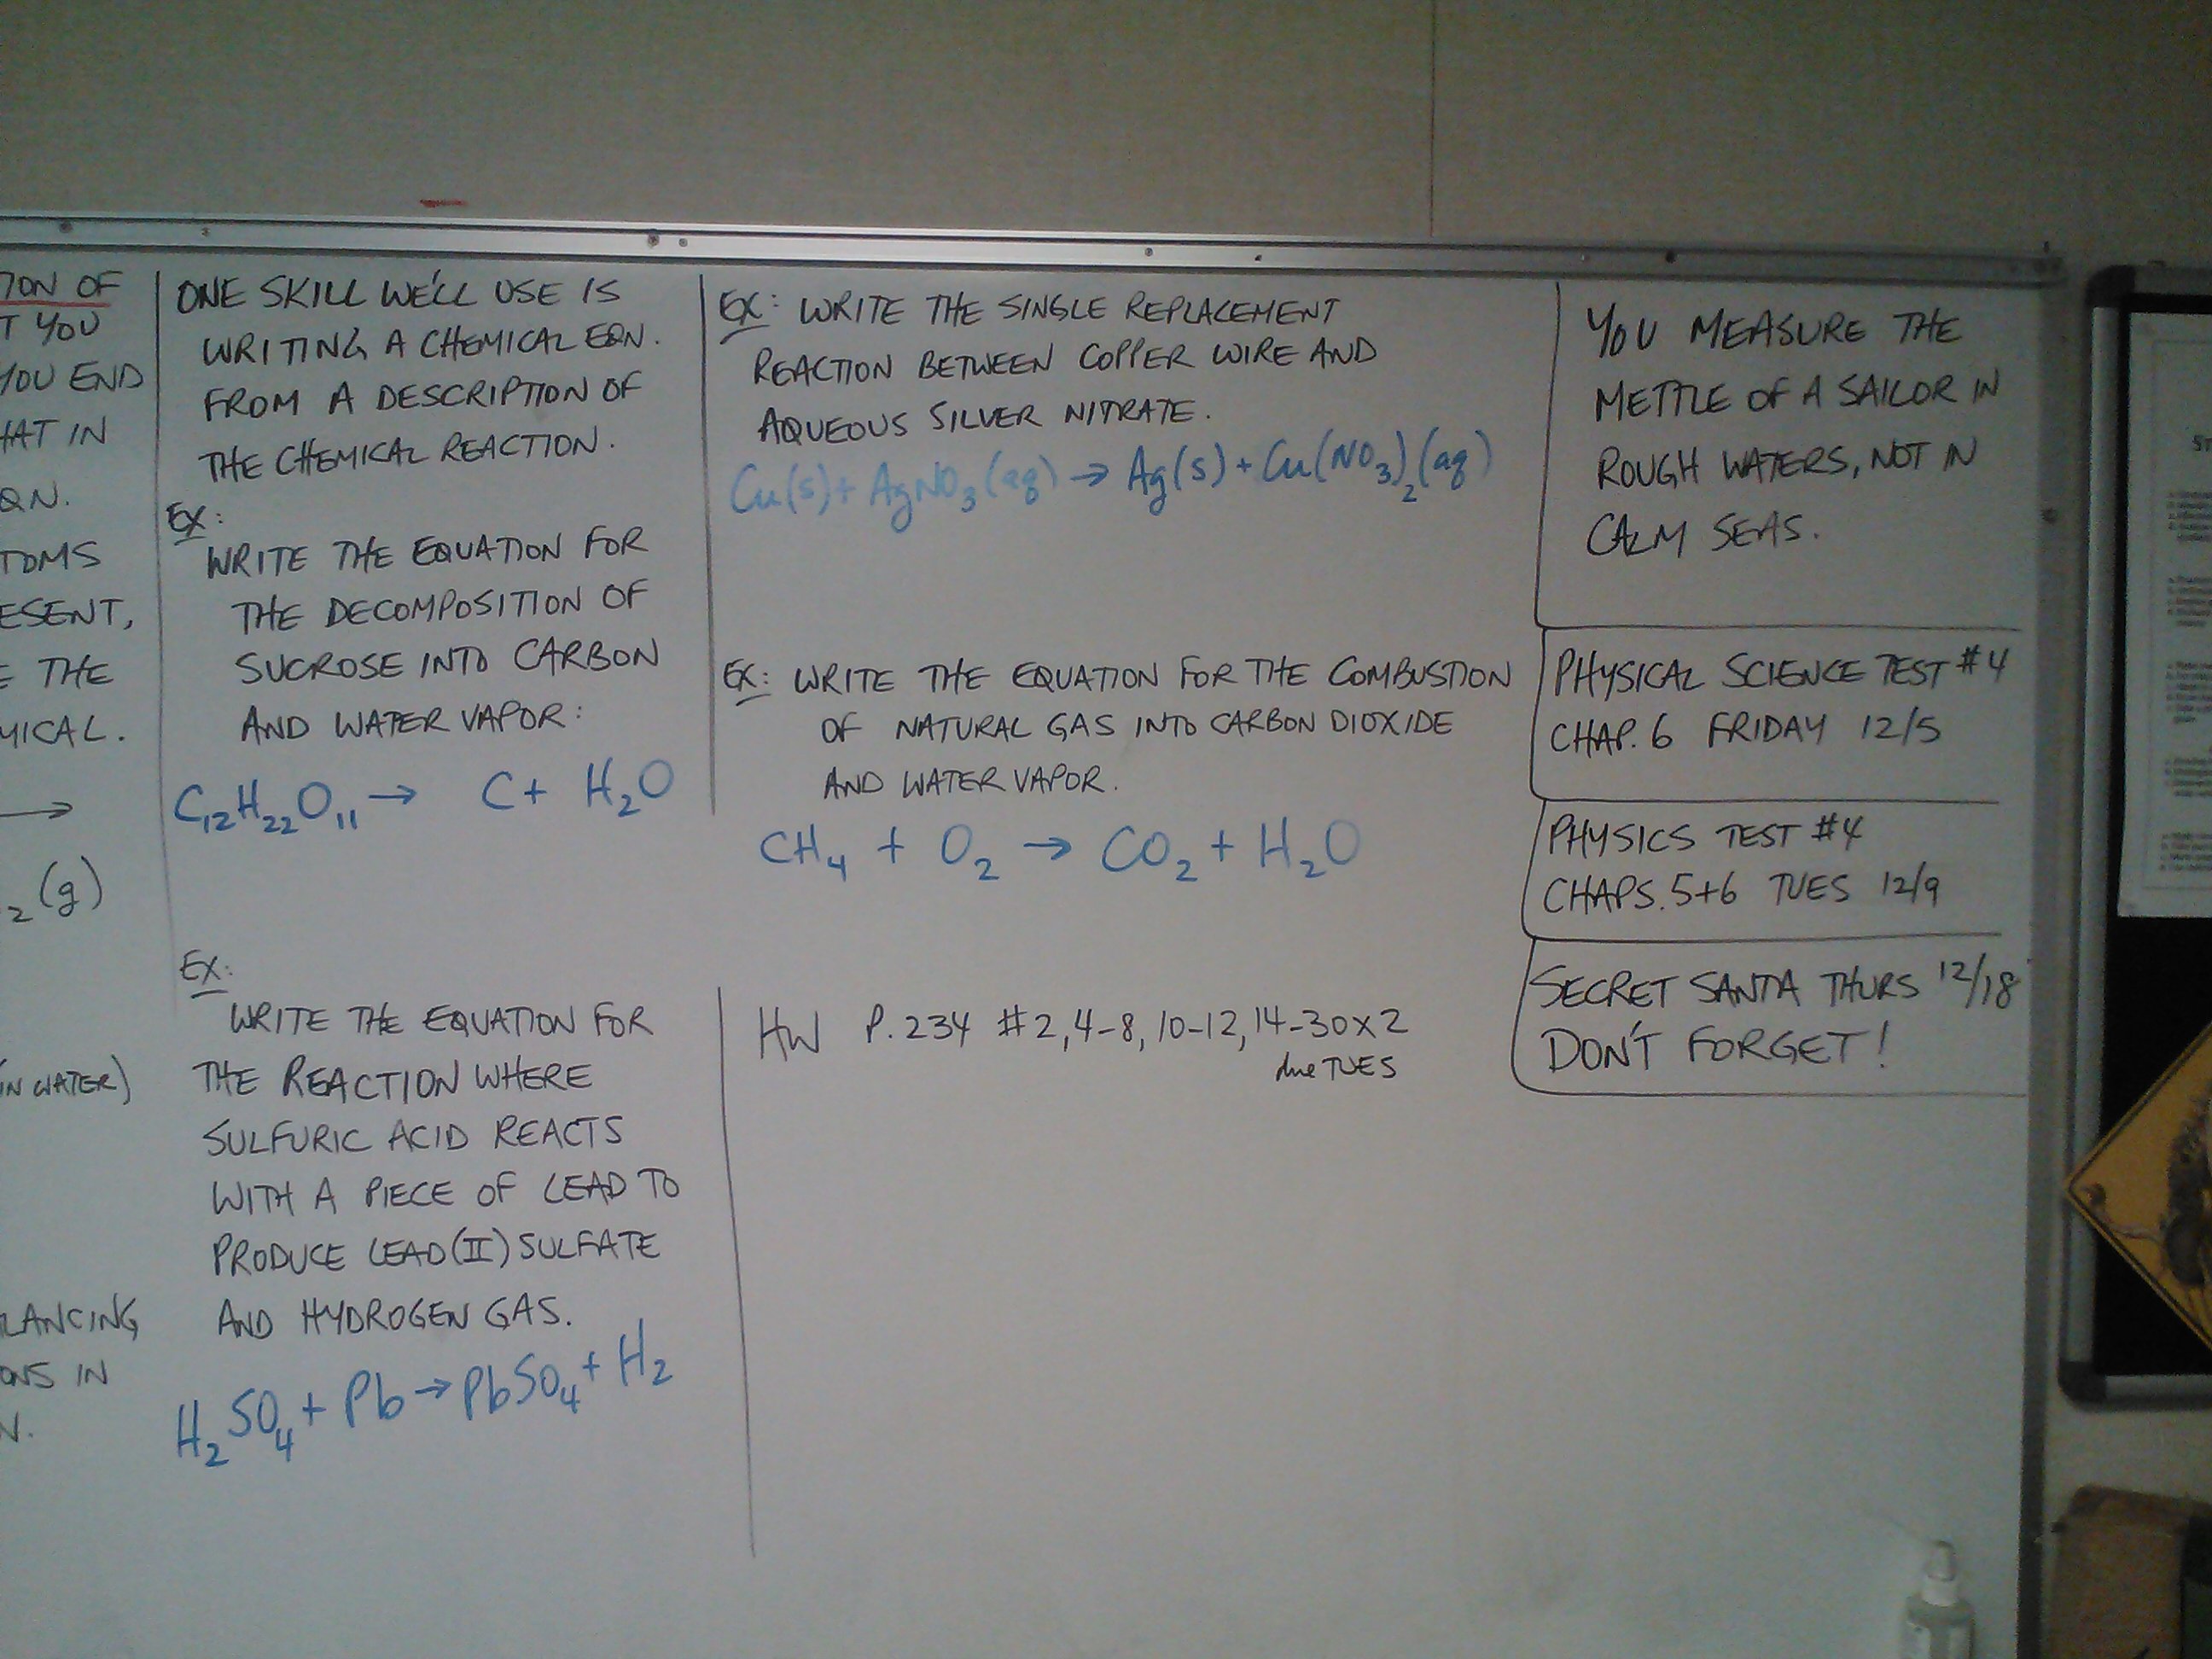 TION OF
T YOU
YOU END
HAT IN
QN.
TOMS
ESENT,
E THE
MICAL.
→
₂(g)
IN WATER)
LANCING
ONS IN
N.
ONE SKILL WE'LL USE IS
WRITING A CHEMICAL EQN.
FROM A DESCRIPTION OF
THE CHEMICAL REACTION.
EX:
WRITE THE EQUATION FOR
THE DECOMPOSITION OF
SUCROSE INTO CARBON
AND WATER VAPOR:
C₁₂H₂₂O₁₁ → C + H₂O
EX:
WRITE THE EQUATION FOR
THE REACTION WHERE
SULFURIC ACID REACTS
WITH A PIECE OF LEAD TO
PRODUCE LEAD(II) SULFATE
AND HYDROGEN GAS.
H₂SO₄ + Pb → PbSO₄ + H₂
EX: WRITE THE SINGLE REPLACEMENT
REACTION BETWEEN COPPER WIRE AND
AQUEOUS SILVER NITRATE.
Cu(s) + AgNO₃(aq) → Ag(s) + Cu(NO₃)₂(aq)
EX: WRITE THE EQUATION FOR THE COMBUSTION
OF NATURAL GAS INTO CARBON DIOXIDE
AND WATER VAPOR.
CH₄ + O₂ → CO₂ + H₂O
HW P. 234 #2, 4-8, 10-12, 14-30x2
due TUES
YOU MEASURE THE
METTLE OF A SAILOR IN
ROUGH WATERS, NOT IN
CALM SEAS.
PHYSICAL SCIENCE TEST #4
CHAP. 6 FRIDAY 12/5
PHYSICS TEST #4
CHAPS. 5+6 TUES 12/9
SECRET SANTA THURS 12/18
DON'T FORGET!